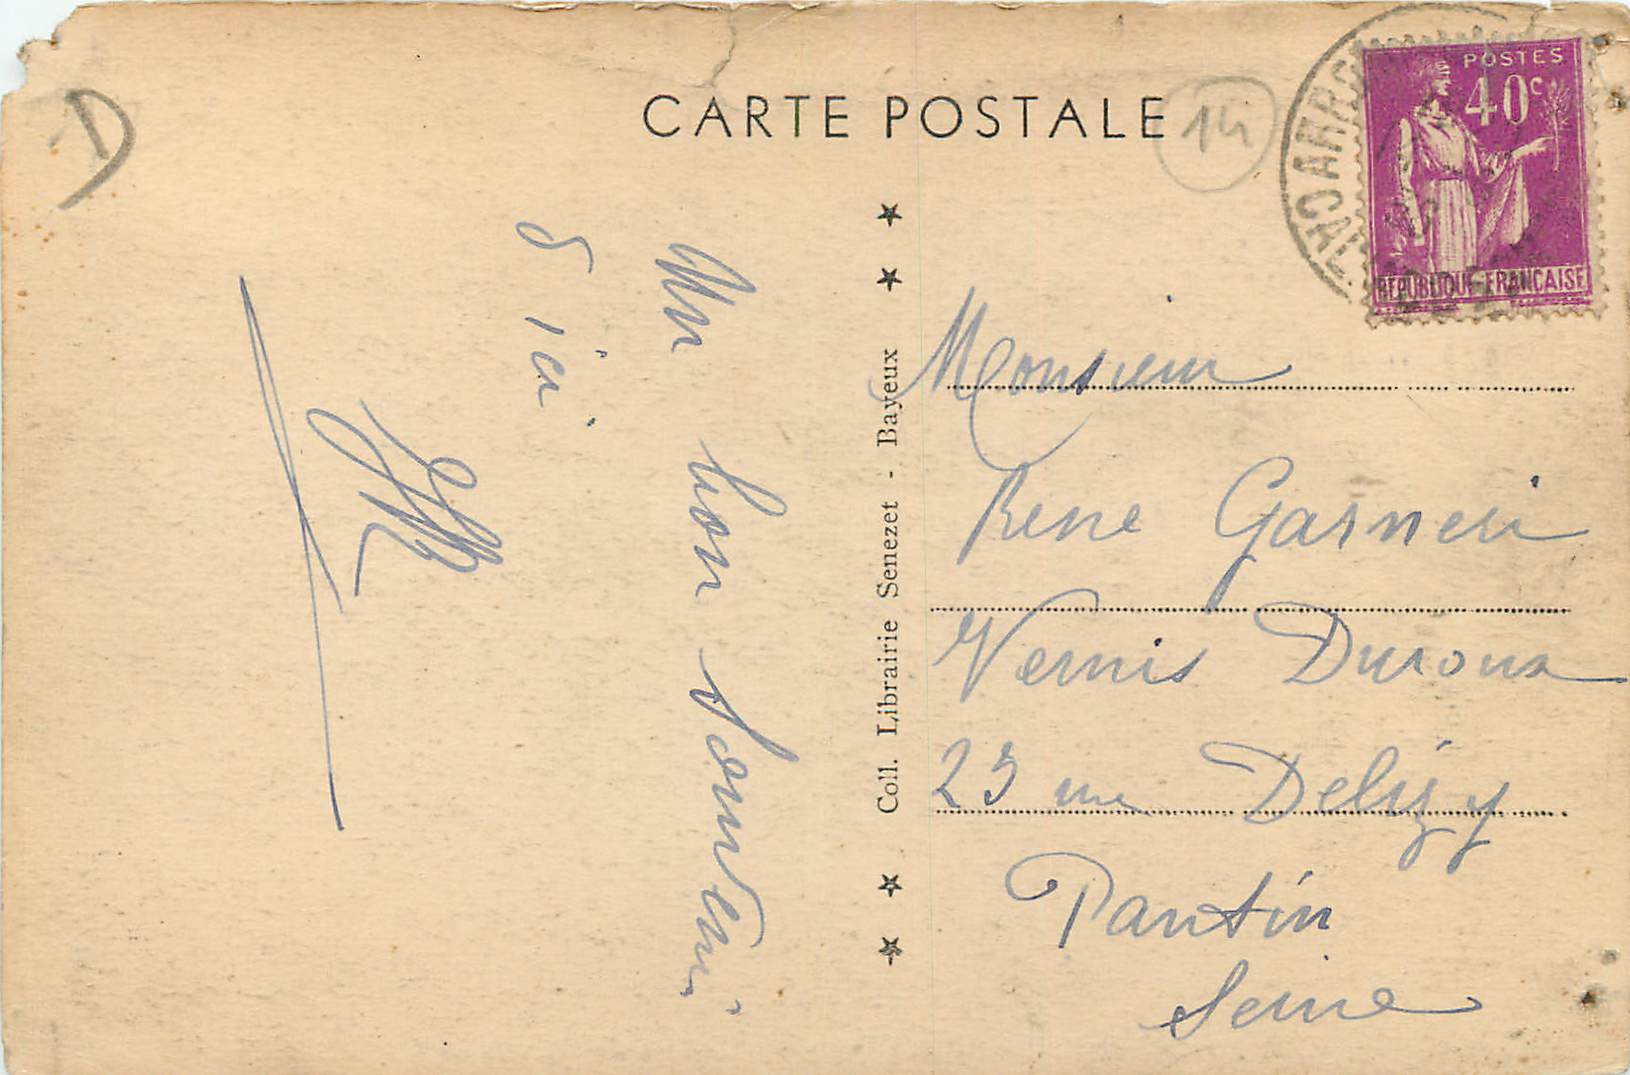 CARTE POSTALE
14
D
POSTES
40c
RÉPUBLIQUE FRANÇAISE
Un bon souvenir
d'ici
Coll. Librairie Senezet - Bayeux
Monsieur
René Garnier
Vernis Duroux
23 rue Delizy
Pantin
Seine